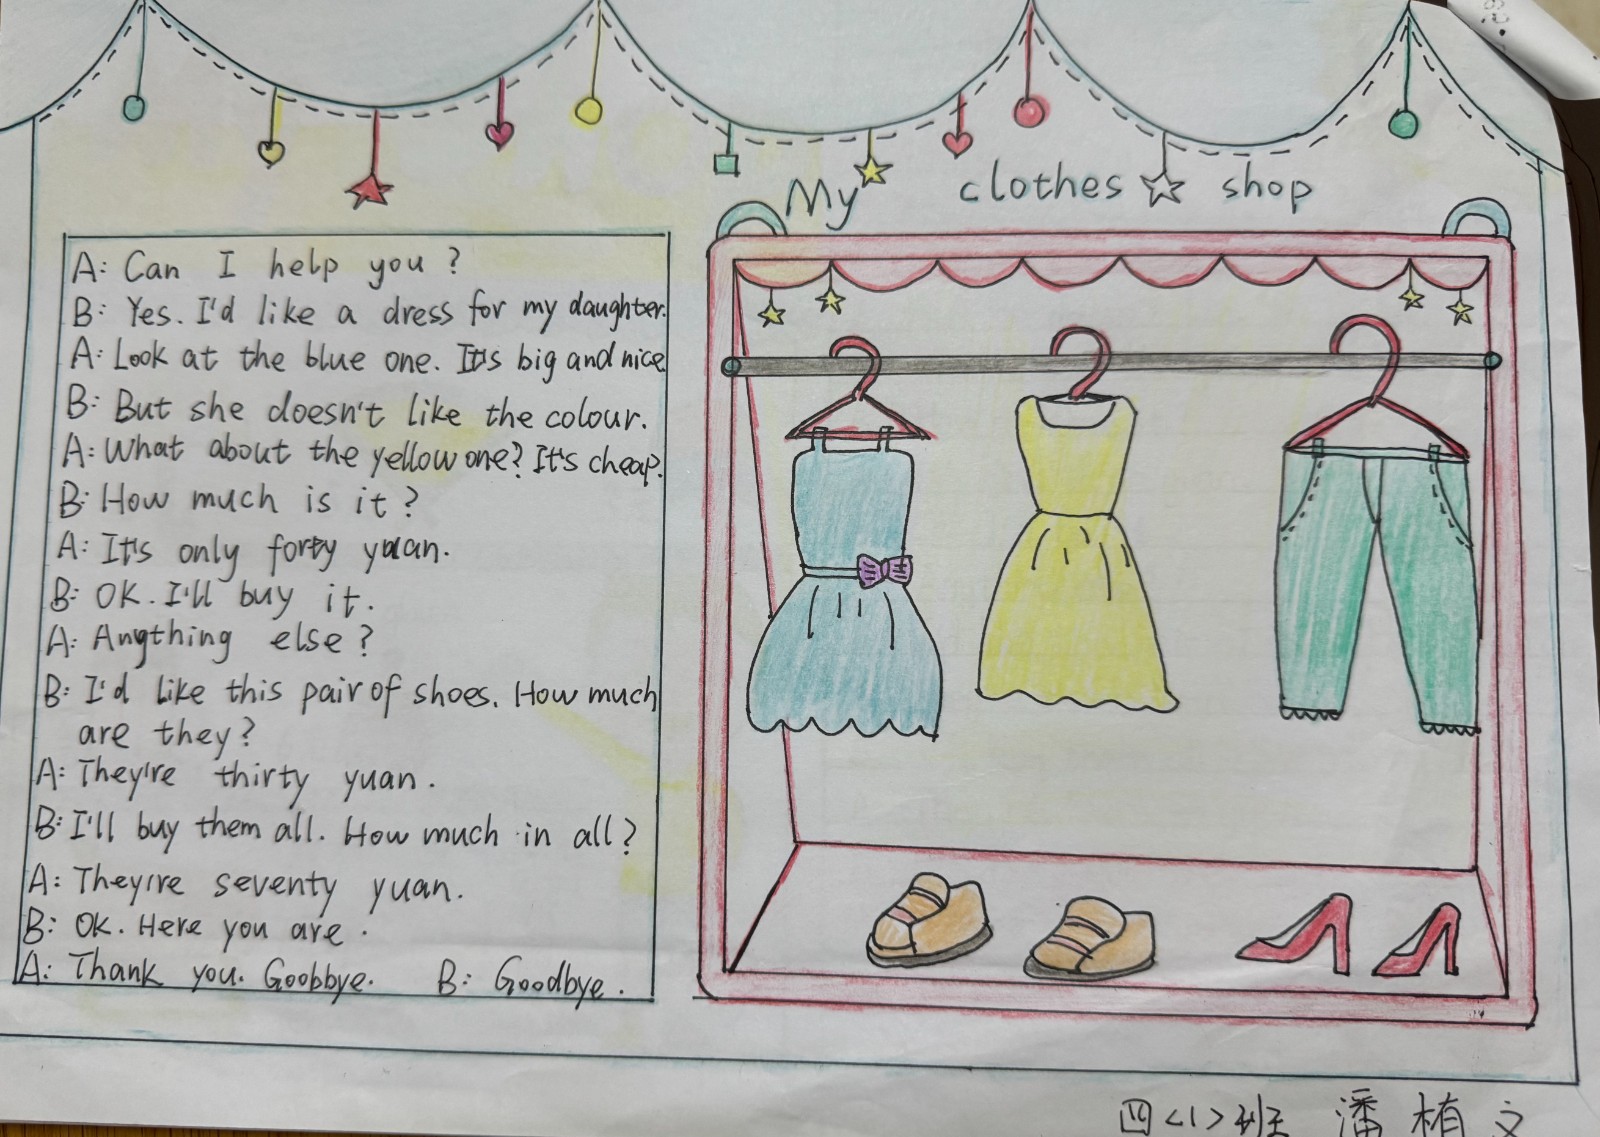 My clothes shop
A: Can I help you?
B: Yes. I'd like a dress for my daughter.
A: Look at the blue one. It's big and nice.
B: But she doesn't like the colour.
A: What about the yellow one? It's cheap.
B: How much is it?
A: It's only forty yuan.
B: OK. I'll buy it.
A: Angthing else?
B: I'd like this pair of shoes. How much
are they?
A: They're thirty yuan.
B: I'll buy them all. How much in all?
A: They're seventy yuan.
B: OK. Here you are.
A: Thank you. Goobbye. B: Goodbye.
四<1>班 潘栯文